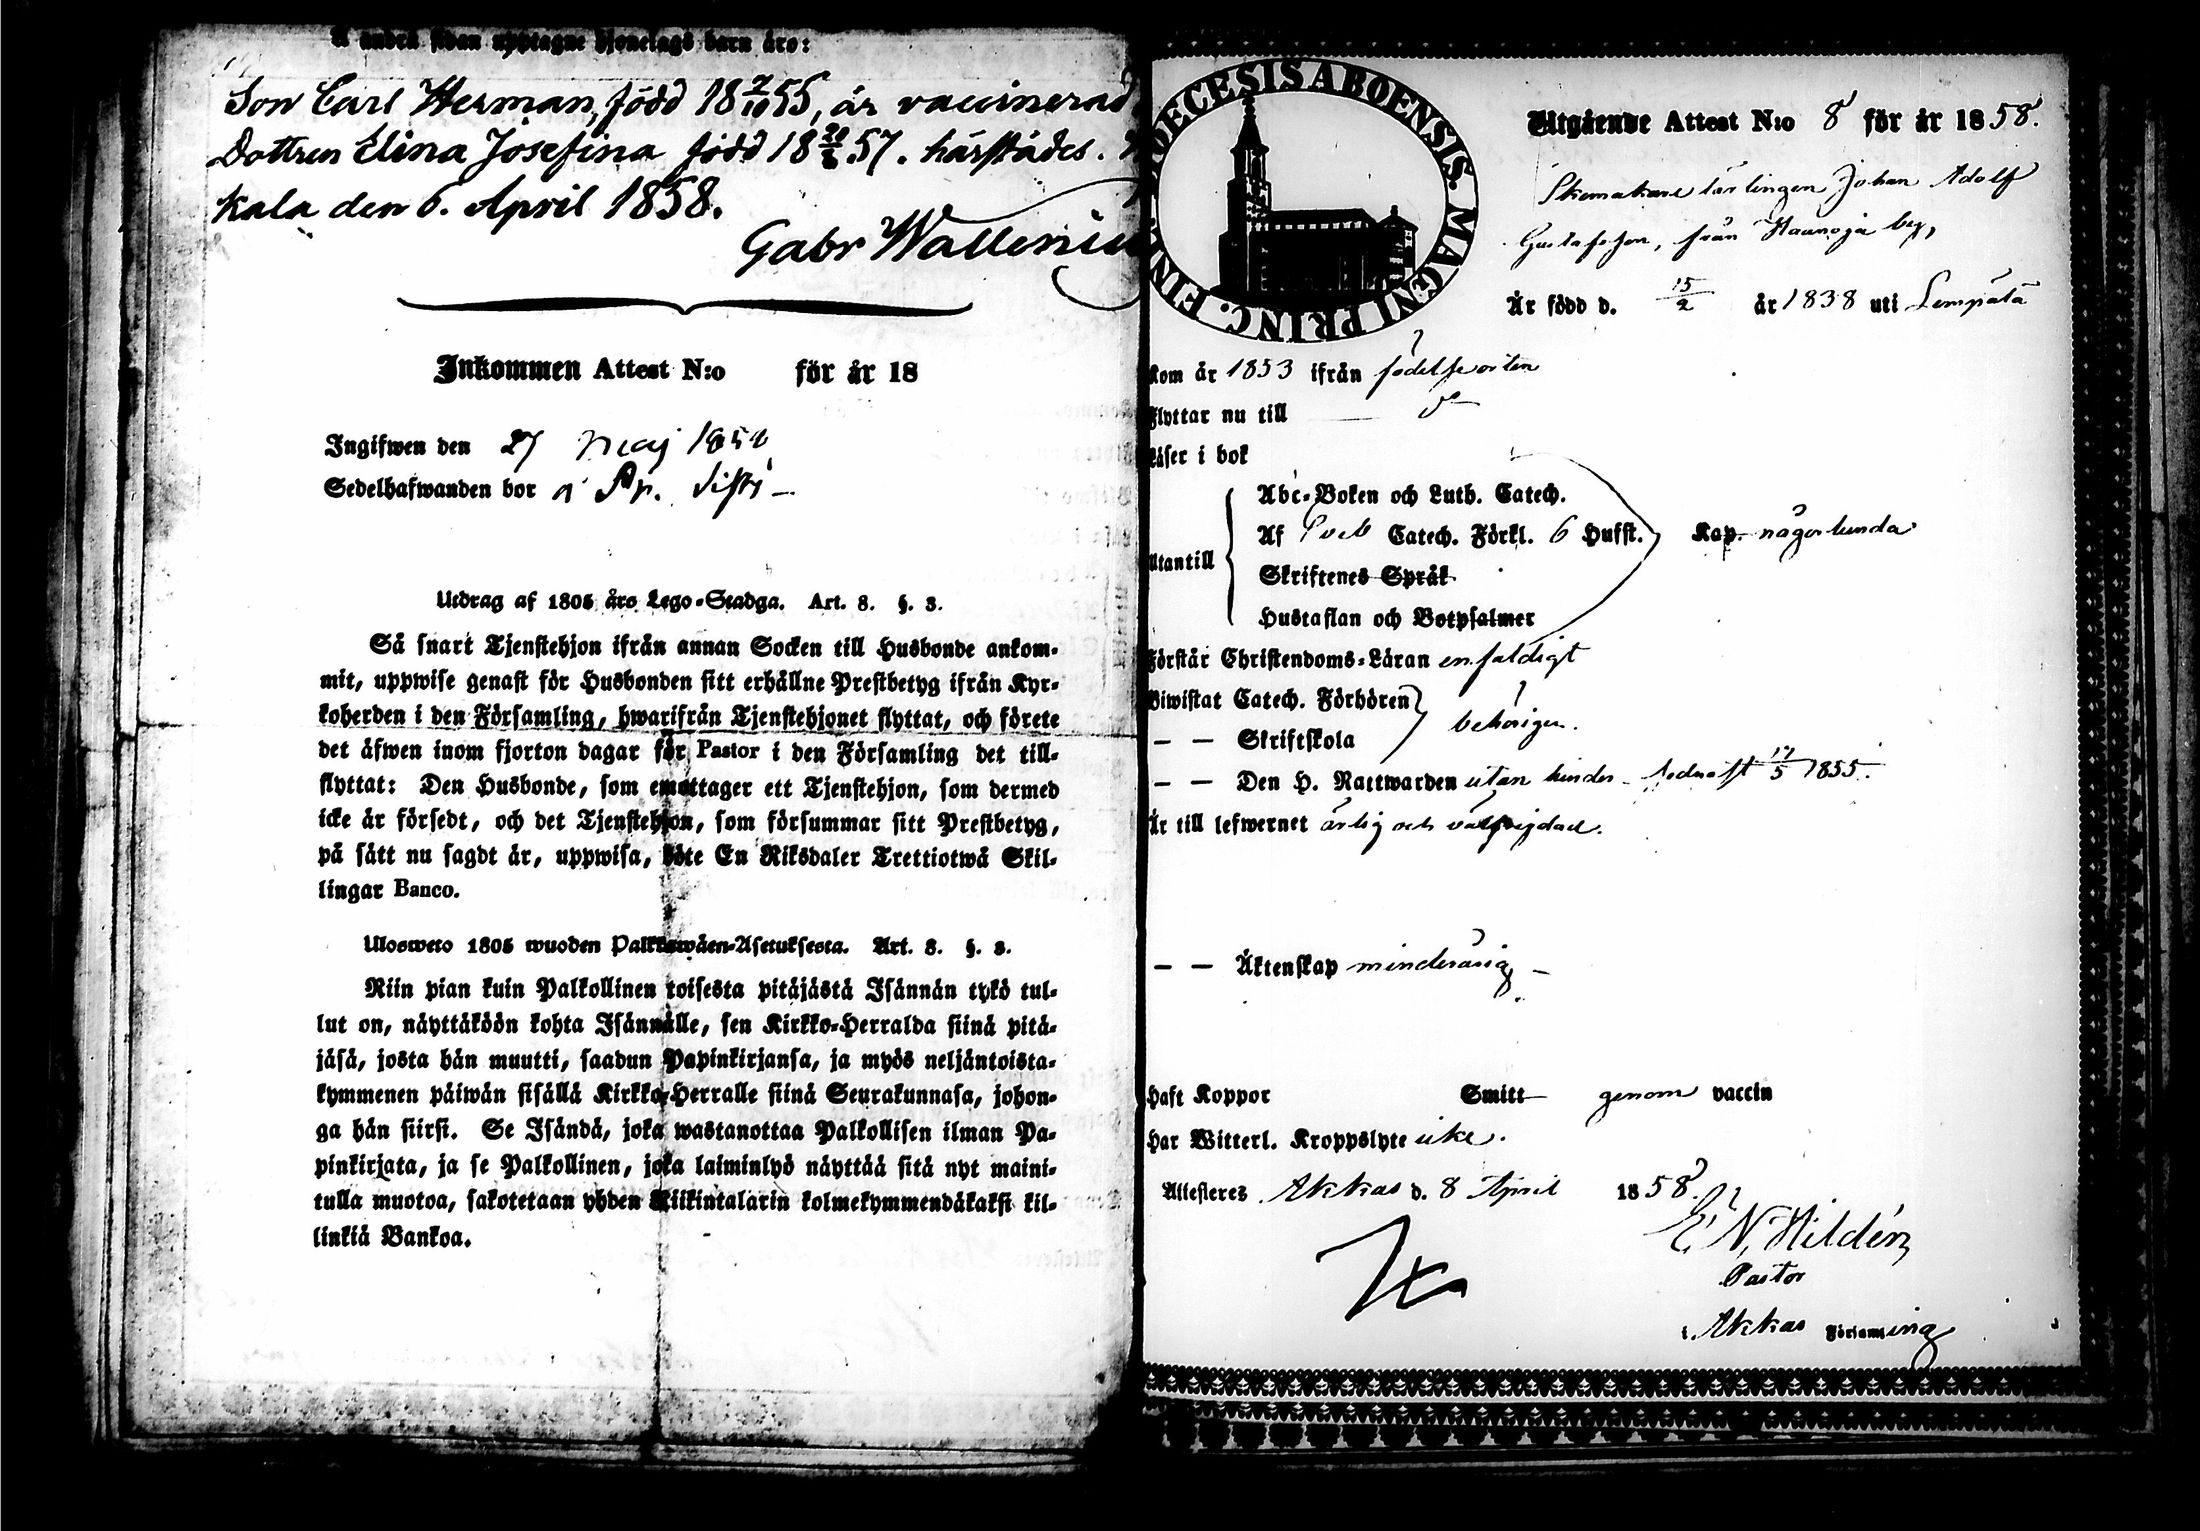 å andra sidan upptagne hjonelags barn äro:
Son Carl Herman, född 18 2/10 55, är vaccinerad
Dottren Elina Josefina född 18 20/2 57. härstädes.
kala den 6. April 1858.
Gabr Wallenius
Inkommen Attest N:o för år 18
Ingifwen den 27 Maj 1858
Sedelhafwanden bor
Utdrag af 1805 års Lego-Stadga. Art. 8. §. 3.
Så snart Tjenstehjon ifrån annan Socken till Husbonde ankom-
mit, uppwise genast för Husbonden sitt erhållne Prestbetyg ifrån Kyr-
koherden i den Församling, hwarifrån Tjenstehjonet flyttat, och förete
det äfwen inom fjorton dagar för Pastor i den Församling det till-
flyttat: Den Husbonde, som emottager ett Tjenstehjon, som dermed
icke är försedt, och det Tjenstehjon, som försummar sitt Prestbetyg,
på sätt nu sagdt är, uppwisa, böte En Riksdaler Trettiotwå Skil-
lingar Banco.
Ulosweto 1805 wuoden Palkkawäen-Asetuksesta. Art. 8. §. 3.
Niin pian kuin Palkollinen toisesta pitäjästä Isännän tykö tul-
lut on, näyttäköön kohta Isännälle, sen Kirkko-Herralda siinä pitä-
jäsä, josta hän muutti, saadun Papinkirjansa, ja myös neljäntoista-
kymmenen päiwän sisällä Kirkko-Herralle siinä Seurakunnasa, johon-
ga hän siirsi. Se Isändä, joka wastanottaa Palkollisen ilman Pa-
pinkirjata, ja se Palkollinen, joka laiminlyö näyttää sitä nyt maini-
tulla muotoa, sakotetaan yhden Riikintalarin kolmekymmendäkaksi kil-
linkiä Bankoa.
DIOECESIS ABOENSIS. MAGNI PRINC. FIN
Utgående Attest N:o 8 för år 1858.
Skomakare lärlingen Johan Adolf
Gustafsson, från Haunoja by,
Är född d. 15/2 år 1838 uti Lempälä
Kom år 1853 ifrån födelseorten
Flyttar nu till do
Läser i bok
Abc-Boken och Luth. Catech.
Af Sveb Catech. Förkl. 6 Hufst. Kap. någorlunda
Utantill
Skriftenes Språk
Hustaflan och Botpsalmer
Förstår Christendoms-Läran enfaldigt
Biwistat Catech. Förhören
behörigen.
— — Skriftskola
— — Den H. Nattwarden utan hinder sednast 17/5 1855.
Är till lefwernet ärlig och välfrejdad.
— — Äktenskap minderårig —
Haft Koppor Smitt genom vaccin
Har Witterl. Kroppslyte icke.
Attesteres Akkas d. 8 April 1858.
E. N. Hildén
Pastor
i Akkas Församling